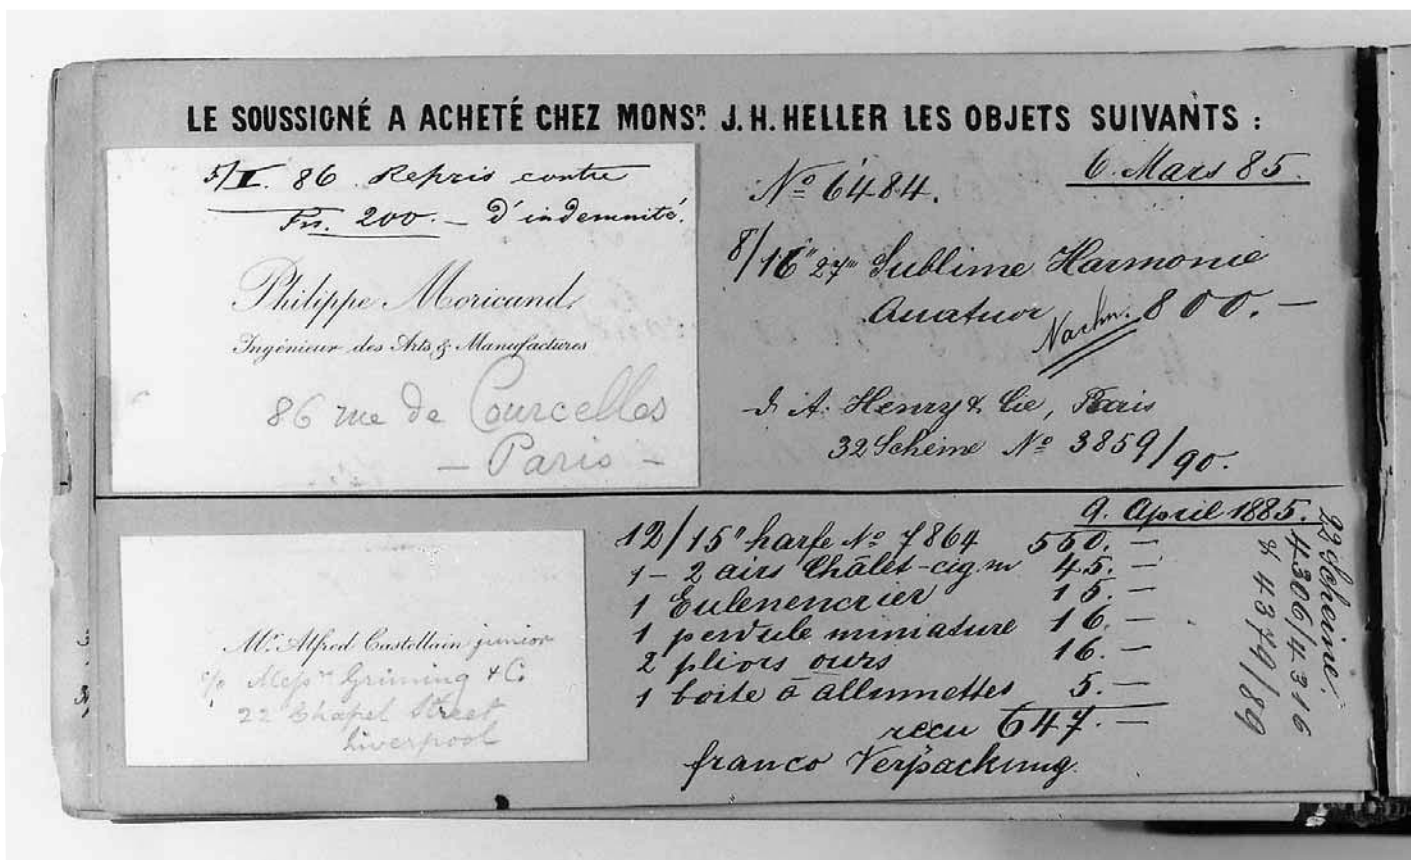 LE SOUSSIGNÉ A ACHETÉ CHEZ MONSR. J. H. HELLER LES OBJETS SUIVANTS :
5/II. 86 Repris contre
Frs. 200.- d'indemnité.
Philippe Moricand,
Ingénieur des Arts & Manufactures
86 rue de Courcelles
- Paris -
6. Mars 85.
No 6484.
8/16" 27''' Sublime Harmonie
Quatuor Nachn. 800.-
d. A. Henry & Cie, Paris
32 Scheine No 3859/90.
Mr. Alfred Castellain junior
c/o Messrs Grüning & Co
22 Chapel Street
Liverpool
9. April 1885.
12/15" harfe No 7864 550.-
1 - 2 airs Châlet-cig.m 45.-
1 Eulenencrier 15.-
1 pendule miniature 16.-
2 pliors ours 16.-
1 boite à allumettes 5.-
recu 647.-
franco Verpackung.
22 Scheine.
4306/4316
& 4379/89